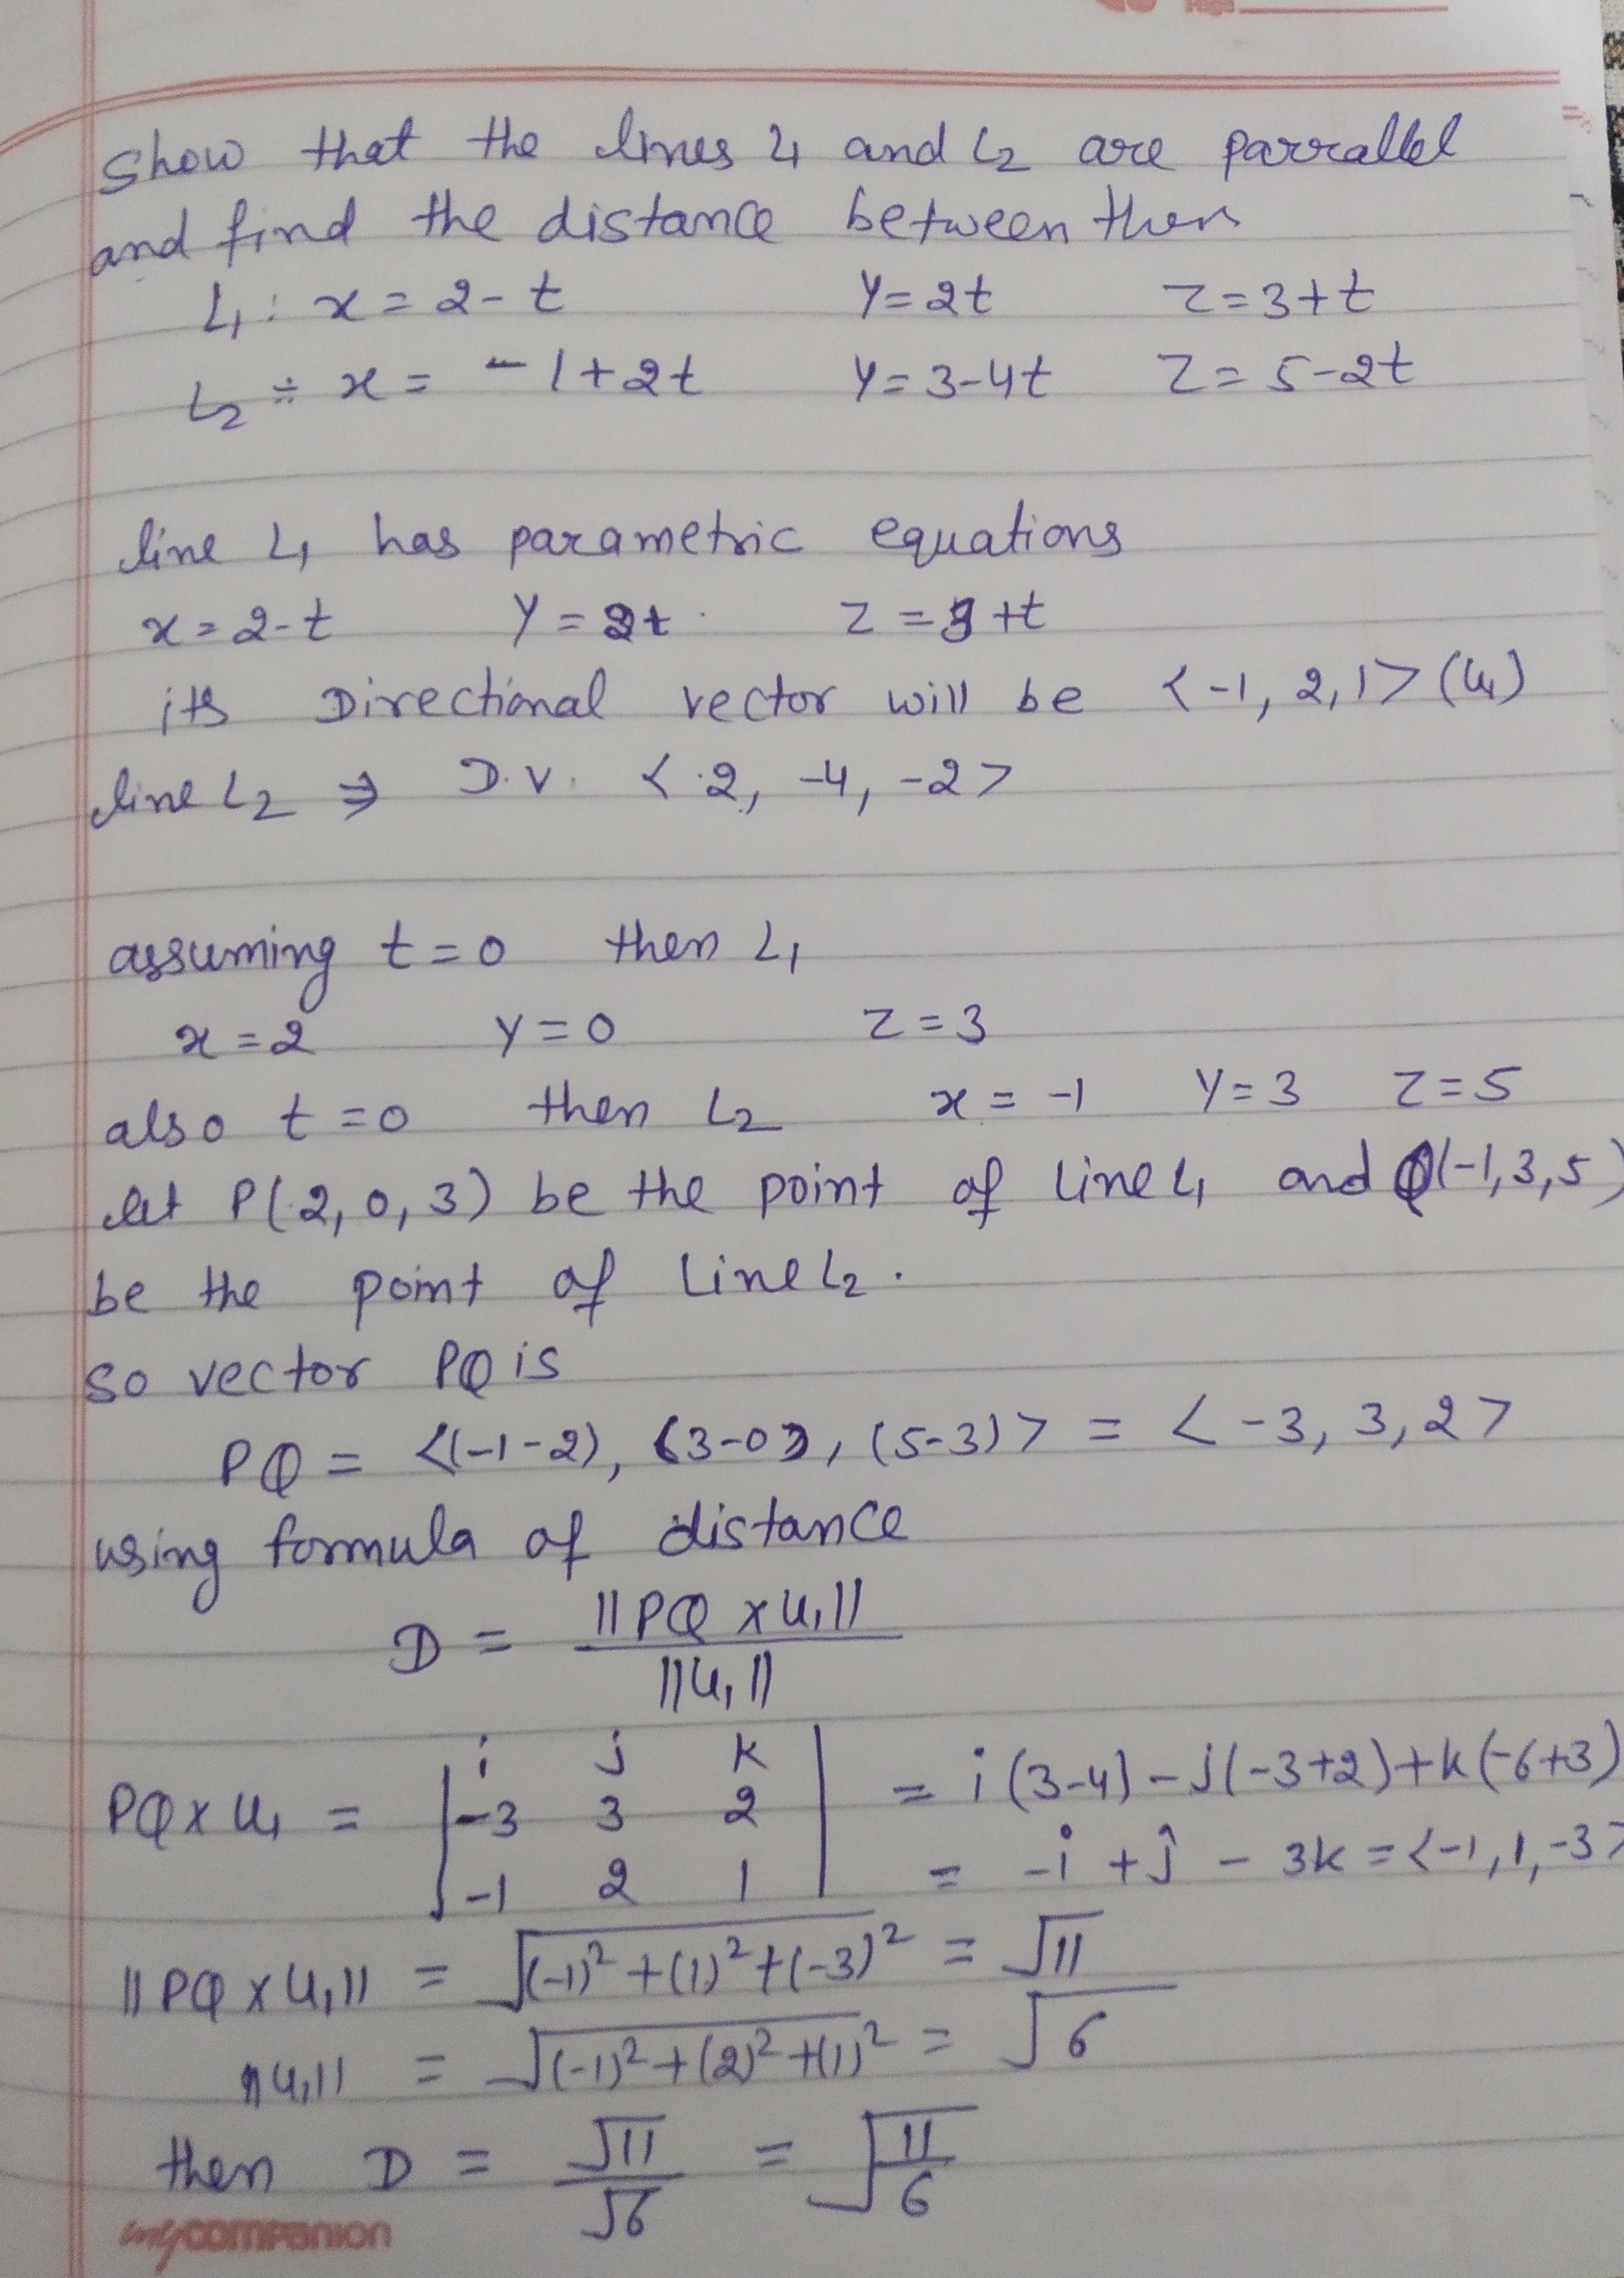 Page
Show that the lines L1 and L2 are parrallel
and find the distance between them
L1 : x = 2 - t y = 2t z = 3+t
L2 ÷ x = -1+2t y = 3-4t z = 5-2t
line L1 has parametric equations
x = 2-t y = 2t z = 3+t
its Directional vector will be <-1, 2, 1> (u1)
line L2 ⇒ D.V. < 2, -4, -2>
assuming t = 0 then L1
x = 2 y = 0 z = 3
also t = 0 then L2 x = -1 y = 3 z = 5
let P(2, 0, 3) be the point of line L1 and Q(-1, 3, 5)
be the point of Line L2 .
so vector PQ is
PQ = <(-1-2), (3-0), (5-3)> = < -3, 3, 2>
using formula of distance
D = ||PQ x u1|| / ||u1||
PQ x u1 = | i j k | = i(3-4) - j(-3+2) + k(-6+3)
| -3 3 2 |
| -1 2 1 | = -i + j - 3k = <-1, 1, -3>
||PQ x u1|| = √(-1)² + (1)² + (-3)² = √11
||u1|| = √(-1)² + (2)² + (1)² = √6
then D = √11 / √6 = √11/6
mycompanion